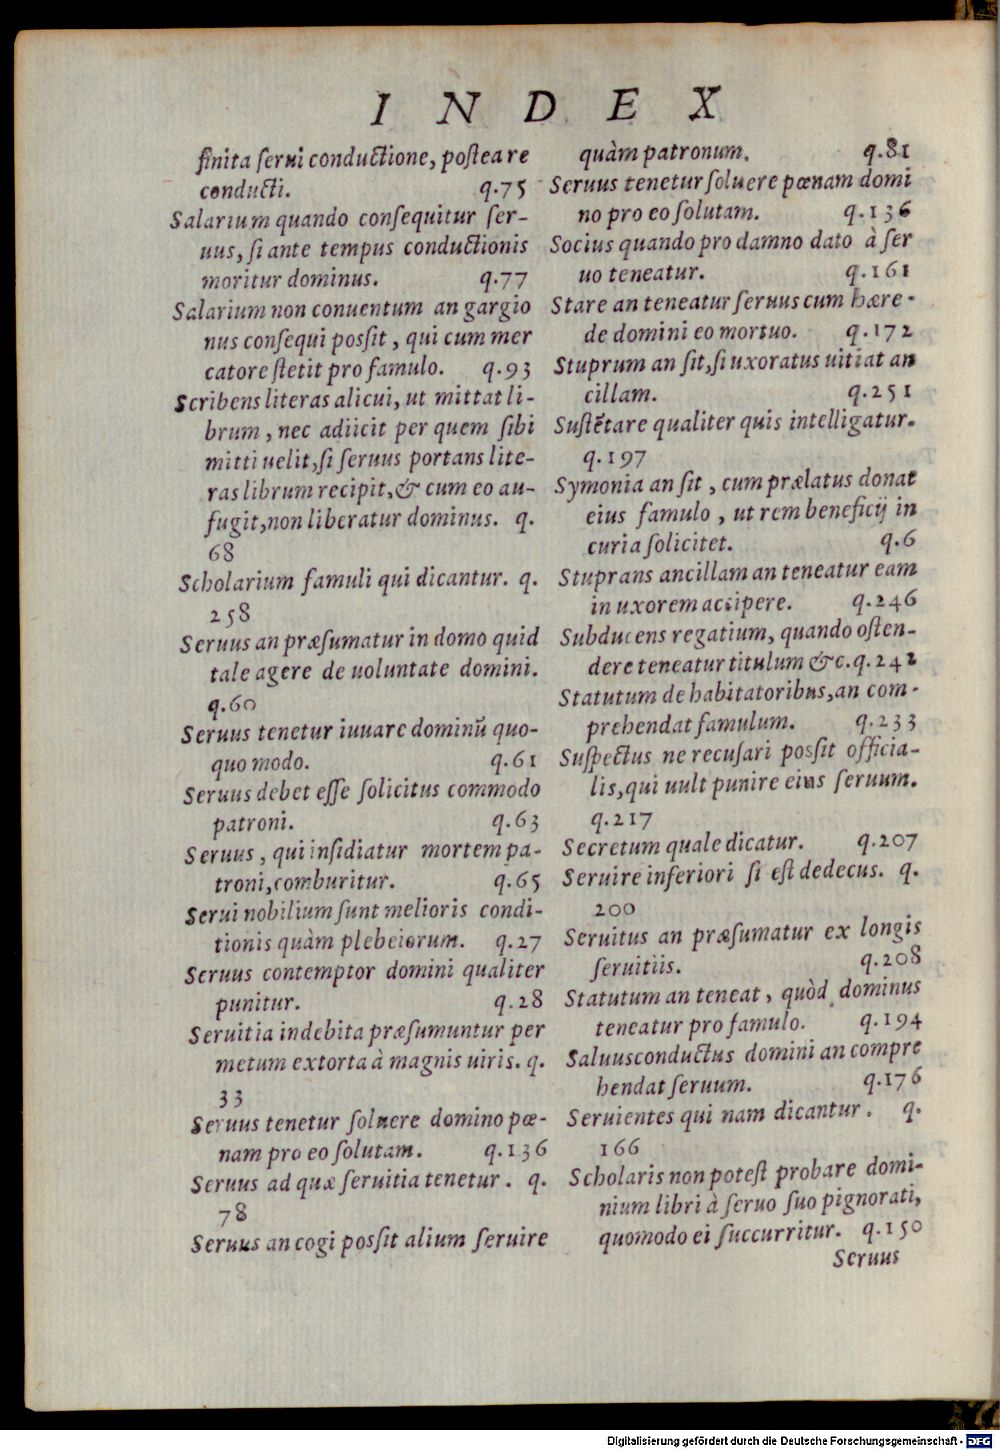 INDEX
finita serui conductione, postea re
conducti. q.75
Salarium quando consequitur ser-
uus, si ante tempus conductionis
moritur dominus. q.77
Salarium non conuentum an gargio
nus consequi possit, qui cum mer
catore stetit pro famulo. q.93
Scribens literas alicui, ut mittat li-
brum, nec adiicit per quem sibi
mitti uelit, si seruus portans lite-
ras librum recipit, & cum eo au-
fugit, non liberatur dominus. q.
68
Scholarium famuli qui dicantur. q.
258
Seruus an præsumatur in domo quid
tale agere de uoluntate domini.
q.60
Seruus tenetur iuuare dominũ quo-
quo modo. q.61
Seruus debet esse solicitus commodo
patroni. q.63
Seruus, qui insidiatur mortem pa-
troni, comburitur. q.65
Serui nobilium sunt melioris condi-
tionis quàm plebeiorum. q.27
Seruus contemptor domini qualiter
punitur. q.28
Seruitia indebita præsumuntur per
metum extorta à magnis uiris. q.
33
Seruus tenetur soluere domino pœ-
nam pro eo solutam. q.136
Seruus ad quæ seruitia tenetur. q.
78
Seruus an cogi possit alium seruire
quàm patronum. q.81
Seruus tenetur soluere pœnam domi
no pro eo solutam. q.136
Socius quando pro damno dato à ser
uo teneatur. q.161
Stare an teneatur seruus cum hære-
de domini eo mortuo. q.172
Stuprum an sit, si uxoratus uitiat an
cillam. q.251
Sustẽtare qualiter quis intelligatur.
q.197
Symonia an sit, cum prælatus donat
eius famulo, ut rem beneficij in
curia solicitet. q.6
Stuprans ancillam an teneatur eam
in uxorem accipere. q.246
Subducens regatium, quando osten-
dere teneatur titulum &c. q.242
Statutum de habitatoribus, an com-
prehendat famulum. q.233
Suspectus ne recusari possit officia-
lis, qui uult punire eius seruum.
q.217
Secretum quale dicatur. q.207
Seruire inferiori si est dedecus. q.
200
Seruitus an præsumatur ex longis
seruitiis. q.208
Statutum an teneat, quòd dominus
teneatur pro famulo. q.194
Saluusconductus domini an compre
hendat seruum. q.176
Seruientes qui nam dicantur. q.
166
Scholaris non potest probare domi-
nium libri à seruo suo pignorati,
quomodo ei succurritur. q.150
Seruus
Digitalisierung gefördert durch die Deutsche Forschungsgemeinschaft - DFG